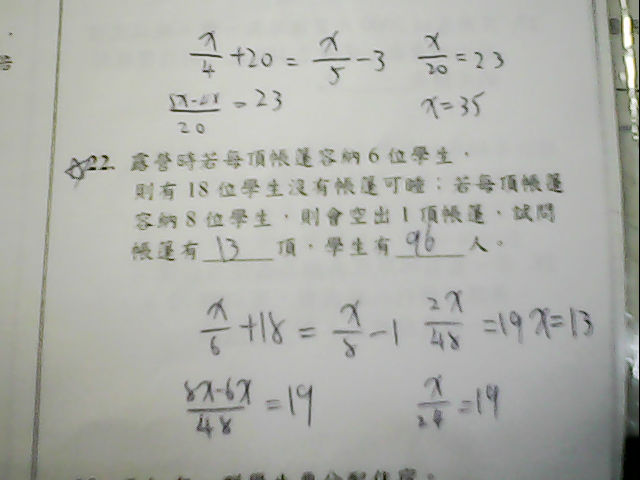 x/4 + 20 = x/5 - 3    x/20 = 23
5x-4x/20 = 23    x = 35
22. 露營時若每頂帳篷容納 6 位學生，
則有 18 位學生沒有帳篷可睡；若每頂帳篷
容納 8 位學生，則會空出 1 頂帳篷，試問
帳篷有 13 頂，學生有 96 人。
x/6 + 18 = x/8 - 1    2x/48 = 19    x = 13
8x-6x/48 = 19    x/24 = 19